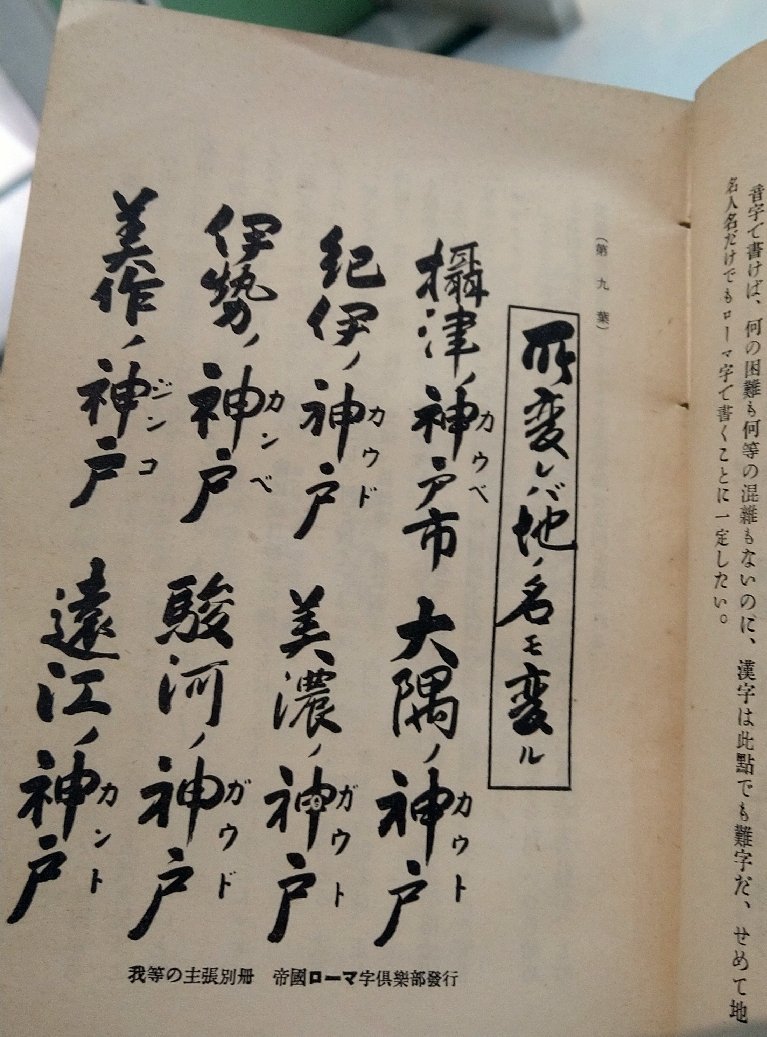 音字で書けば、何の困難も何等の混雑もないのに、漢字は此點でも難字だ、せめて地
名人名だけでもローマ字で書くことに一定したい。
(第九葉)
所変レバ地ノ名モ変ル
攝津ノ神戸市 カウベ
大隅ノ神戸 カウト
紀伊ノ神戸 カウド
美濃ノ神戸 ガウト
伊勢ノ神戸 カンベ
駿河ノ神戸 ガウド
美作ノ神戸 ジンコ
遠江ノ神戸 カント
我等の主張別冊 帝國ローマ字倶樂部發行